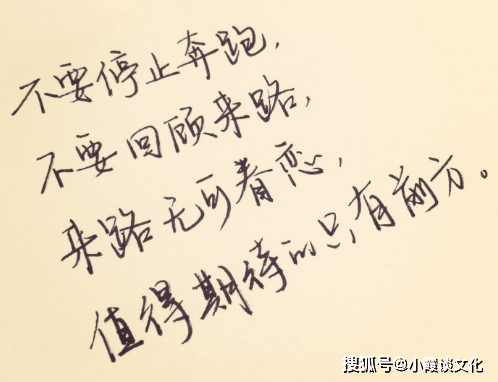 不要停止奔跑,
不要回顾来路,
来路无可眷恋,
值得期待的只有前方。
搜狐号@小霞谈文化